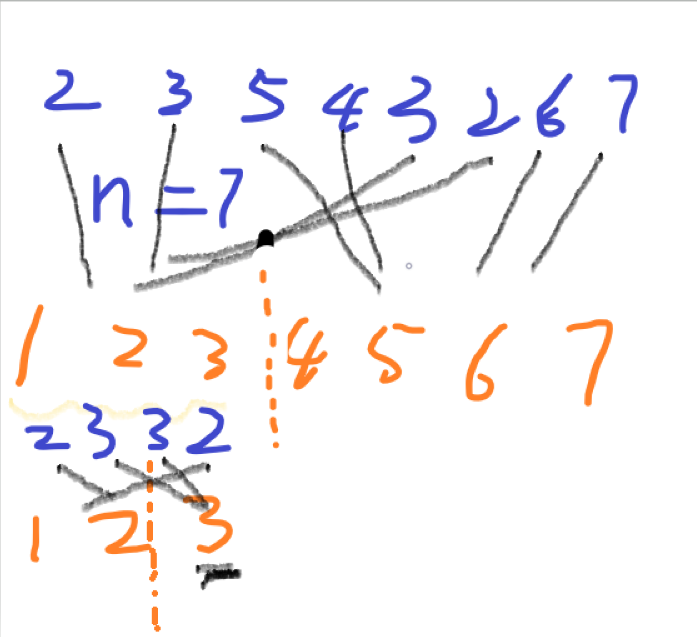 2 3 5 4 3 2 6 7
n = 7
1 2 3 4 5 6 7
2 3 3 2
1 2 3